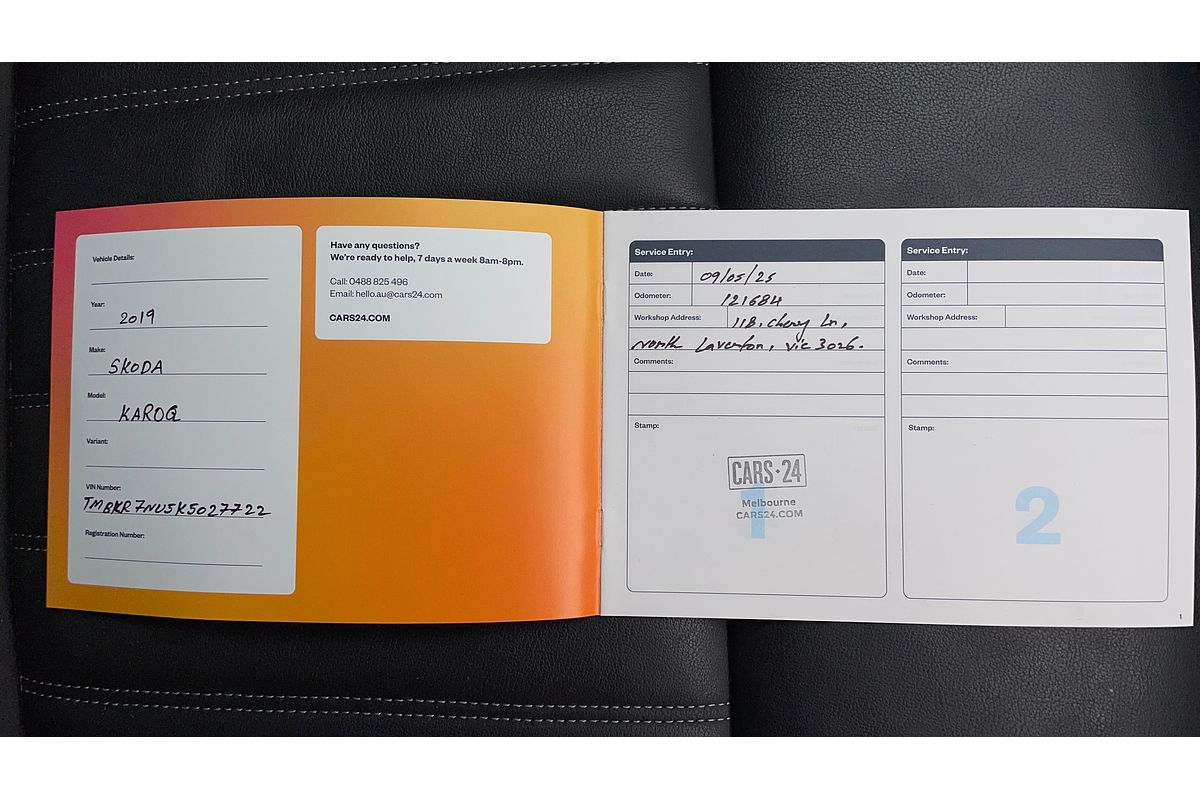 Vehicle Details:
Year:
2019
Make:
SKODA
Model:
KAROQ
Variant:
VIN Number:
TMBKR7NU5K5027722
Registration Number:
Have any questions?
We're ready to help, 7 days a week 8am-8pm.
Call: 0488 825 496
Email: hello.au@cars24.com
CARS24.COM
Service Entry:
Date: 09/05/25
Odometer: 121684
Workshop Address: 11B, Cherry Ln,
North Laverton, Vic 3026.
Comments:
Stamp:
CARS•24
Melbourne
CARS24.COM
1
Service Entry:
Date:
Odometer:
Workshop Address:
Comments:
Stamp:
2
1